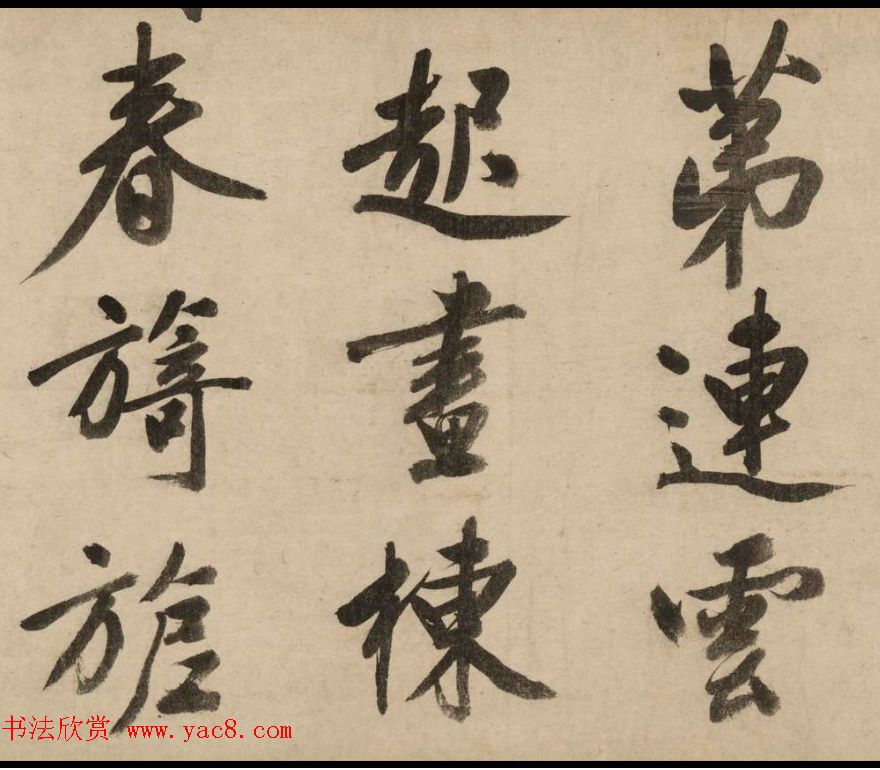 第連雲
起畫棟
春旖旎
书法欣赏 www.yac8.com